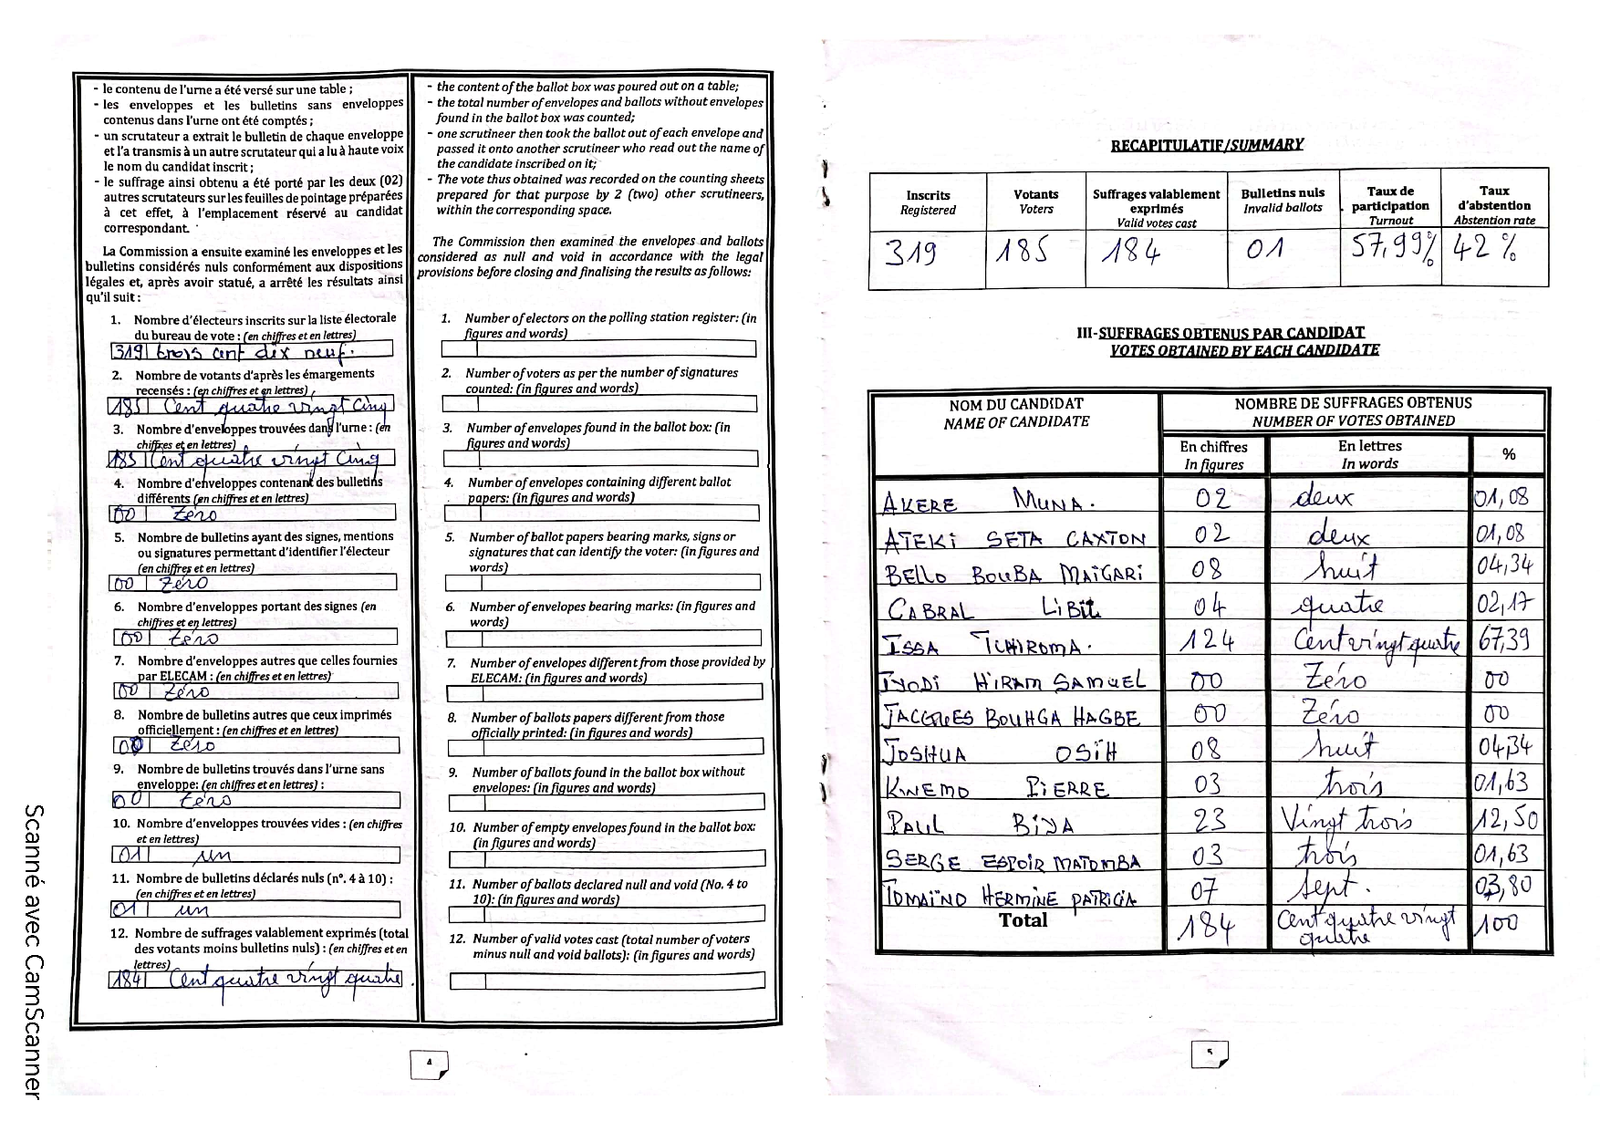 - le contenu de l'urne a été versé sur une table ;
- les enveloppes et les bulletins sans enveloppes
contenus dans l'urne ont été comptés ;
- un scrutateur a extrait le bulletin de chaque enveloppe
et l'a transmis à un autre scrutateur qui a lu à haute voix
le nom du candidat inscrit ;
- le suffrage ainsi obtenu a été porté par les deux (02)
autres scrutateurs sur les feuilles de pointage préparées
à cet effet, à l'emplacement réservé au candidat
correspondant.
La Commission a ensuite examiné les enveloppes et les
bulletins considérés nuls conformément aux dispositions
légales et, après avoir statué, a arrêté les résultats ainsi
qu'il suit :
1. Nombre d'électeurs inscrits sur la liste électorale
du bureau de vote : (en chiffres et en lettres)
319 trois cent dix neuf.
2. Nombre de votants d'après les émargements
recensés : (en chiffres et en lettres)
185 Cent quatre vingt Cinq
3. Nombre d'enveloppes trouvées dans l'urne : (en
chiffres et en lettres)
185 Cent quatre vingt Cinq
4. Nombre d'enveloppes contenant des bulletins
différents (en chiffres et en lettres)
00 Zéro
5. Nombre de bulletins ayant des signes, mentions
ou signatures permettant d'identifier l'électeur
(en chiffres et en lettres)
00 Zéro
6. Nombre d'enveloppes portant des signes (en
chiffres et en lettres)
00 Zéro
7. Nombre d'enveloppes autres que celles fournies
par ELECAM : (en chiffres et en lettres)
00 Zéro
8. Nombre de bulletins autres que ceux imprimés
officiellement : (en chiffres et en lettres)
00 Zéro
9. Nombre de bulletins trouvés dans l'urne sans
enveloppe: (en chiffres et en lettres) :
00 Zéro
10. Nombre d'enveloppes trouvées vides : (en chiffres
et en lettres)
01 un
11. Nombre de bulletins déclarés nuls (n°. 4 à 10) :
(en chiffres et en lettres)
01 un
12. Nombre de suffrages valablement exprimés (total
des votants moins bulletins nuls) : (en chiffres et en
lettres)
184 Cent quatre vingt quatre
- the content of the ballot box was poured out on a table;
- the total number of envelopes and ballots without envelopes
found in the ballot box was counted;
- one scrutineer then took the ballot out of each envelope and
passed it onto another scrutineer who read out the name of
the candidate inscribed on it;
- The vote thus obtained was recorded on the counting sheets
prepared for that purpose by 2 (two) other scrutineers,
within the corresponding space.
The Commission then examined the envelopes and ballots
considered as null and void in accordance with the legal
provisions before closing and finalising the results as follows:
1. Number of electors on the polling station register: (in
figures and words)
2. Number of voters as per the number of signatures
counted: (in figures and words)
3. Number of envelopes found in the ballot box: (in
figures and words)
4. Number of envelopes containing different ballot
papers: (in figures and words)
5. Number of ballot papers bearing marks, signs or
signatures that can identify the voter: (in figures and
words)
6. Number of envelopes bearing marks: (in figures and
words)
7. Number of envelopes different from those provided by
ELECAM: (in figures and words)
8. Number of ballots papers different from those
officially printed: (in figures and words)
9. Number of ballots found in the ballot box without
envelopes: (in figures and words)
10. Number of empty envelopes found in the ballot box:
(in figures and words)
11. Number of ballots declared null and void (No. 4 to
10): (in figures and words)
12. Number of valid votes cast (total number of voters
minus null and void ballots): (in figures and words)
4
Scanné avec CamScanner
RECAPITULATIF/SUMMARY
Inscrits Votants Suffrages valablement Bulletins nuls Taux de Taux
Registered Voters exprimés Invalid ballots participation d'abstention
Valid votes cast Turnout Abstention rate
319 185 184 01 57,99% 42 %
III-SUFFRAGES OBTENUS PAR CANDIDAT
VOTES OBTAINED BY EACH CANDIDATE
NOM DU CANDIDAT NOMBRE DE SUFFRAGES OBTENUS
NAME OF CANDIDATE NUMBER OF VOTES OBTAINED
En chiffres En lettres %
In figures In words
AKERE MUNA. 02 deux 01,08
ATEKI SETA CAXTON 02 deux 01,08
BELLO BOUBA MAÏGARI 08 huit 04,34
CABRAL LIBII 04 quatre 02,17
ISSA TCHIROMA. 124 Cent vingt quatre 67,39
IYODI HIRAM SAMUEL 00 Zéro 00
JACQUES BOUHGA HAGBE 00 Zéro 00
JOSHUA OSIH 08 huit 04,34
KINEMO PIERRE 03 trois 01,63
PAUL BIYA 23 Vingt trois 12,50
SERGE ESPOIR MATOMBA 03 trois 01,63
TOMAÏNO HERMINE PATRICIA 07 sept. 03,80
Total 184 Cent quatre vingt quatre 100
5